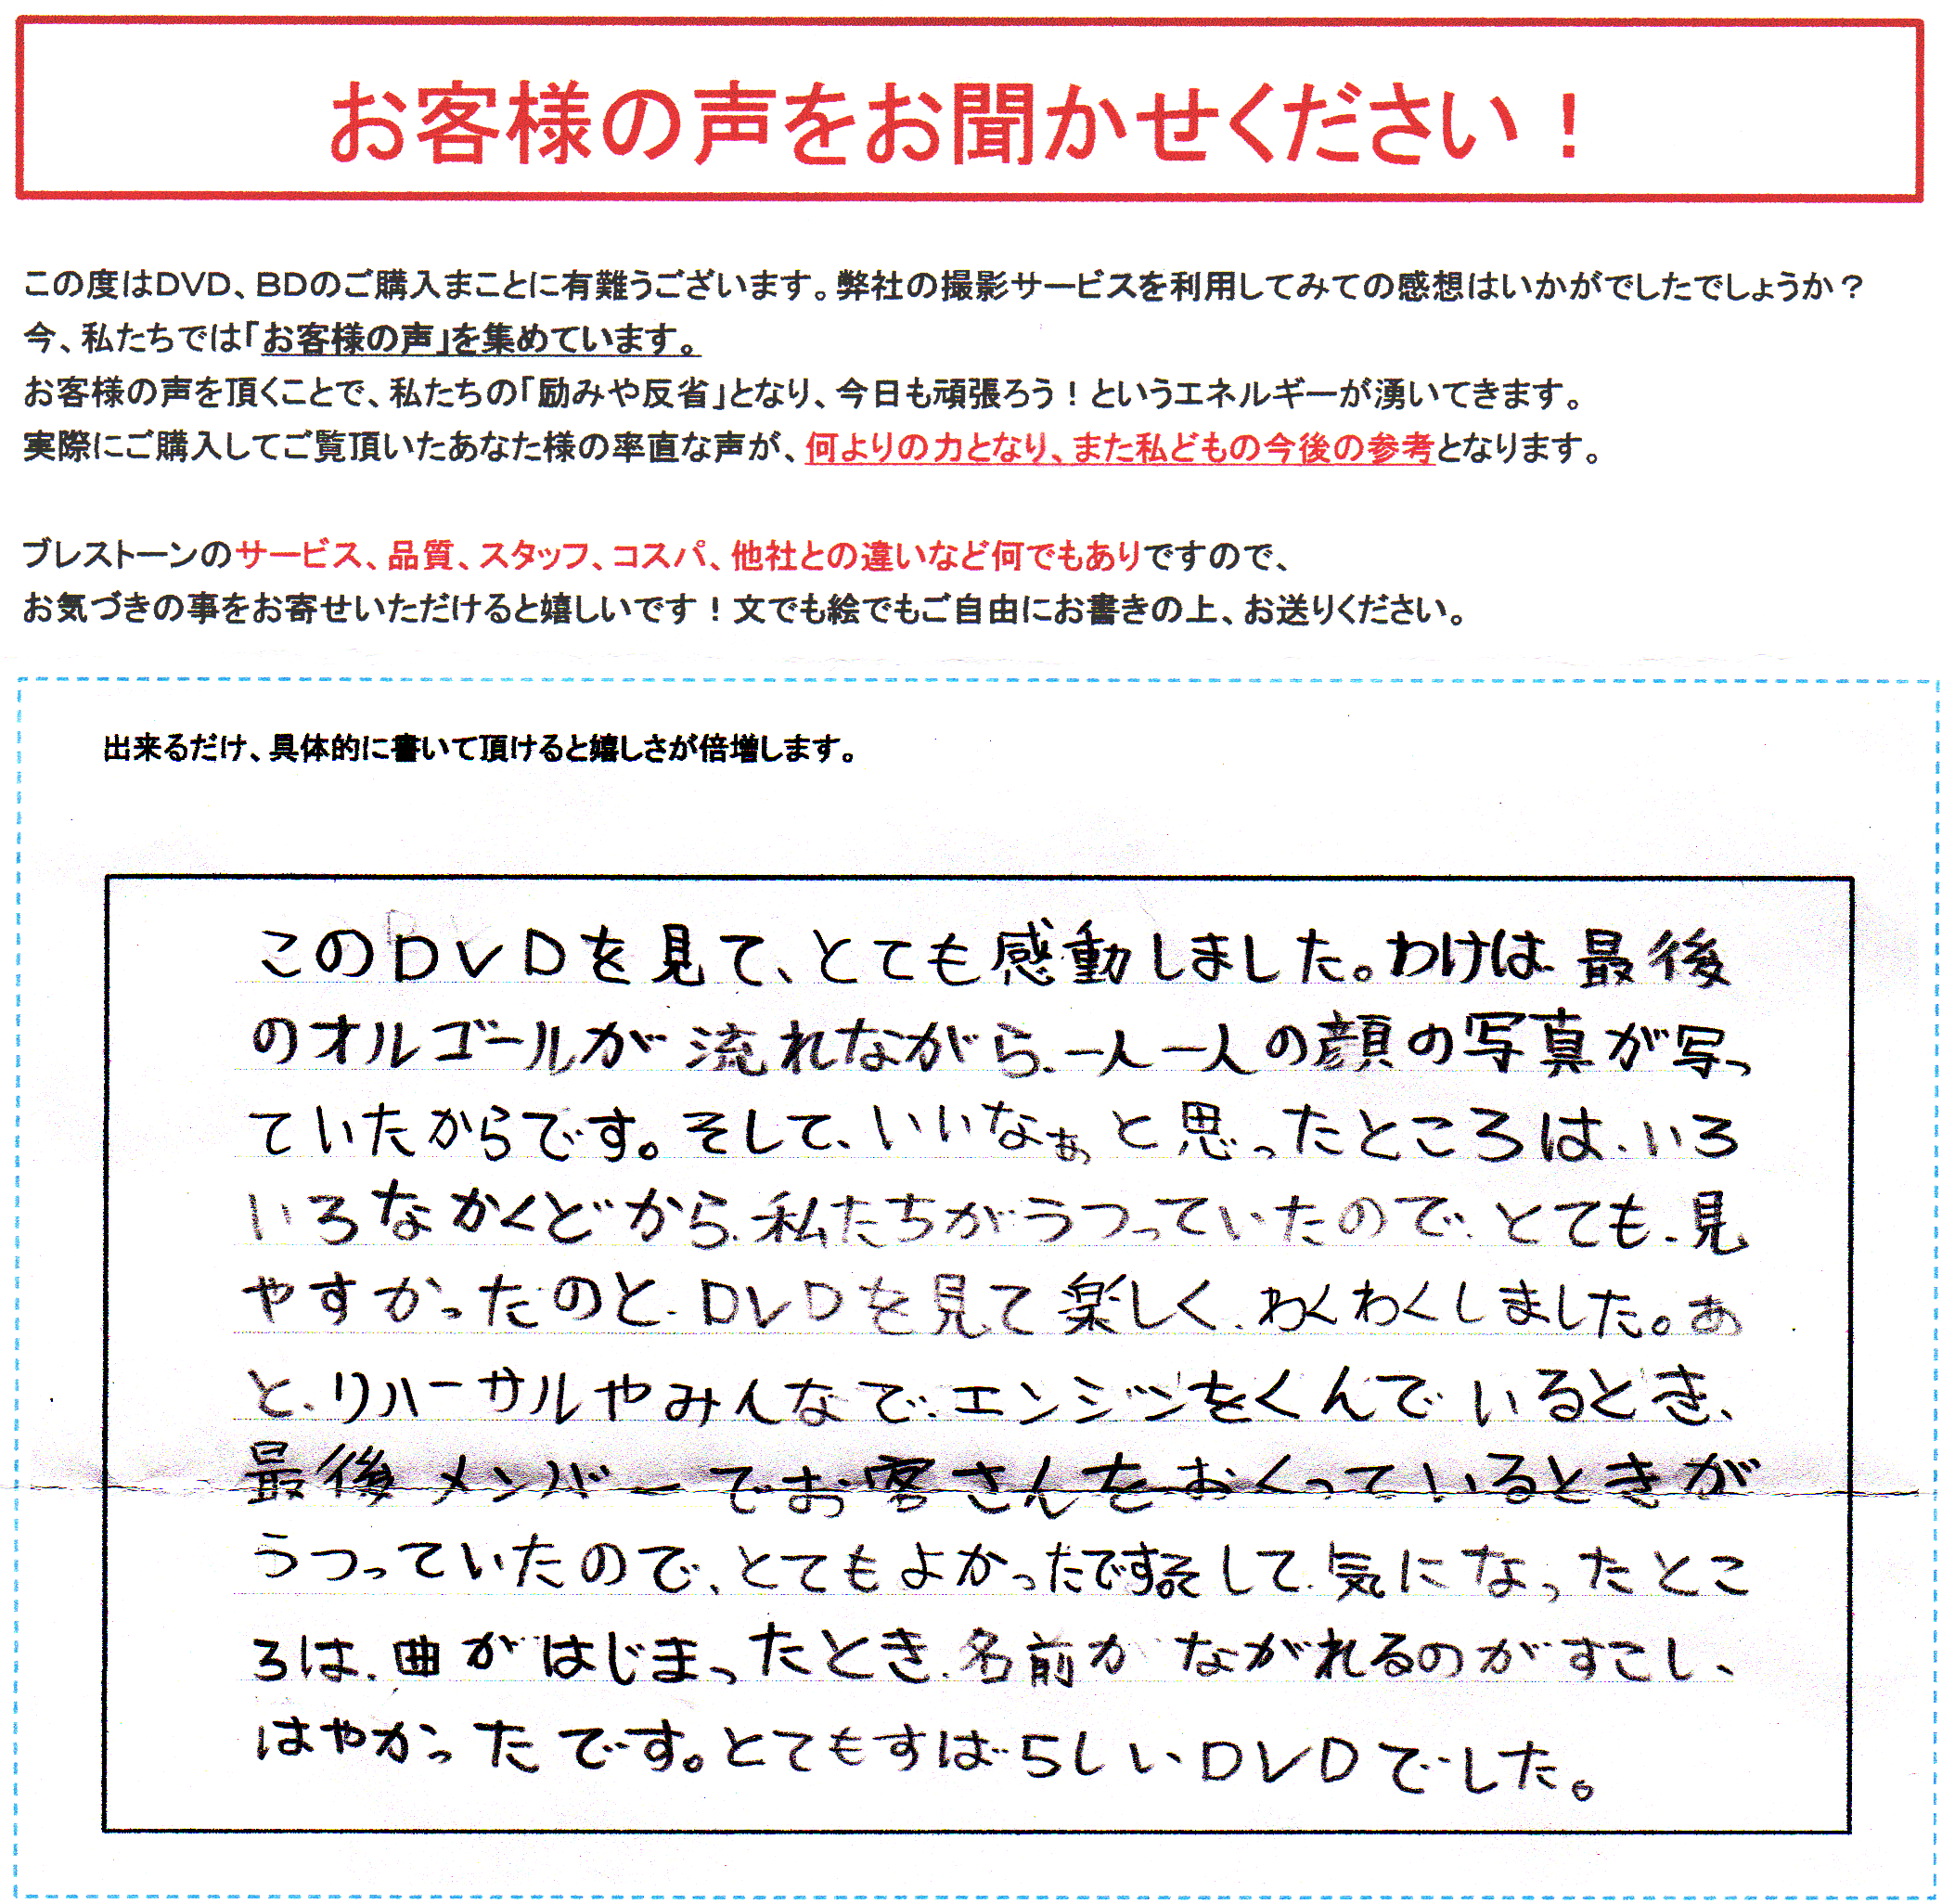 お客様の声をお聞かせください！
この度はDVD、BDのご購入まことに有難うございます。弊社の撮影サービスを利用してみての感想はいかがでしたでしょうか？
今、私たちでは「お客様の声」を集めています。
お客様の声を頂くことで、私たちの「励みや反省」となり、今日も頑張ろう！というエネルギーが湧いてきます。
実際にご購入してご覧頂いたあなた様の率直な声が、何よりの力となり、また私どもの今後の参考となります。
ブレストーンのサービス、品質、スタッフ、コスパ、他社との違いなど何でもありですので、
お気づきの事をお寄せいただけると嬉しいです！文でも絵でもご自由にお書きの上、お送りください。
出来るだけ、具体的に書いて頂けると嬉しさが倍増します。
このDVDを見て、とても感動しました。わけは最後
のオルゴールが流れながら、一人一人の顔の写真が写っ
ていたからです。そして、いいなぁと思ったところは、いろ
いろなかくどから、私たちがうつっていたので、とても、見
やすかったのと、DVDを見て楽しく、わくわくしました。あ
と、リハーサルやみんなで、エンジンをくんでいるとき、
最後メンバーでお客さんをおくっているときが
うつっていたので、とてもよかったです。そして、気になったとこ
ろは、曲がはじまったとき、名前がながれるのがすこし、
はやかったです。とてもすばらしいDVDでした。